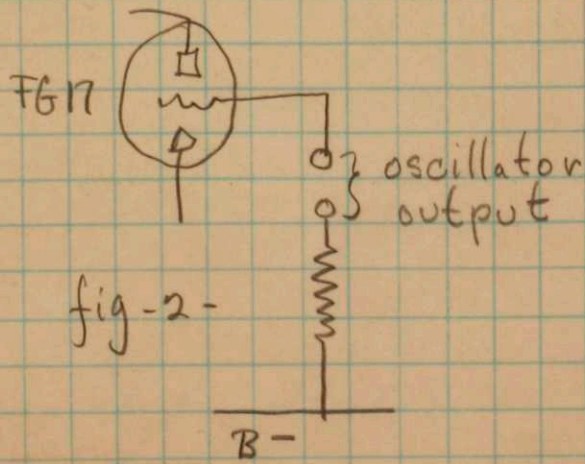 FG17
oscillator
output
fig-2-
B-